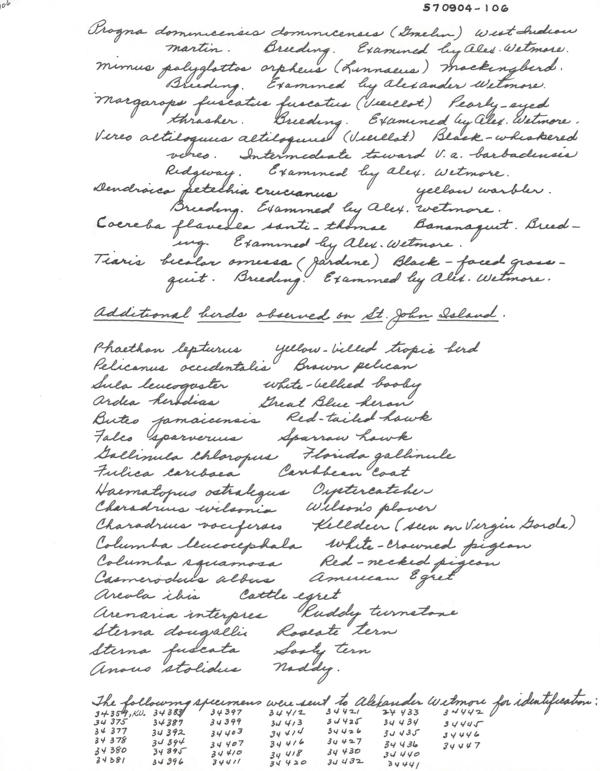 106
570904-106
Progna dominicensis dominicensis (Gmelin) West Indian
martin. Breeding. Examined by Alex. Wetmore.
Mimus polyglottos orpheus (Linnaeus) Mockingbird.
Breeding. Examined by Alexander Wetmore.
Margarops fuscatus fuscatus (Vieillot) Pearly-eyed
thrasher. Breeding. Examined by Alex. Wetmore.
Vireo altiloquus altiloquus (Vieillot) Black-whiskered
vireo. Intermediate toward V. a. barbadensis
Ridgway. Examined by Alex. Wetmore.
Dendroica petechia crucianus yellow warbler.
Breeding. Examined by Alex. Wetmore.
Coereba flaveola santi-thomae Bananaquit. Breed-
ing. Examined by Alex. Wetmore.
Tiaris bicolor omissa (Jardine) Black-faced grass-
quit. Breeding. Examined by Alex. Wetmore.
Additional birds observed on St. John Island.
Phaethon lepturus yellow-billed tropic bird
Pelicanus occidentalis Brown pelican
Sula leucogaster White-bellied booby
Ardea herodias Great Blue heron
Buteo jamaicensis Red-tailed hawk
Falco sparverius Sparrow hawk
Gallinula chloropus Florida gallinule
Fulica caribaea Caribbean coot
Haematopus ostralegus Oystercatcher
Charadrius wilsonia Wilson's plover
Charadrius vociferus Killdeer (seen on Virgin Gorda)
Columba leucocephala White-crowned pigeon
Columba squamosa Red-necked pigeon
Casmerodius albus American Egret
Ardeola ibis Cattle egret
Arenaria interpres Ruddy turnstone
Sterna dougallii Roseate tern
Sterna fuscata Sooty tern
Anous stolidus Noddy.
The following specimens were sent to Alexander Wetmore for identification:
34359, KU. 34383 34397 34412 34421 34433 34442
34375 34387 34399 34413 34425 34434 34445
34377 34392 34403 34414 34426 34435 34446
34378 34394 34407 34416 34427 34436 34447
34380 34395 34410 34418 34430 34440
34381 34396 34411 34420 34432 34441